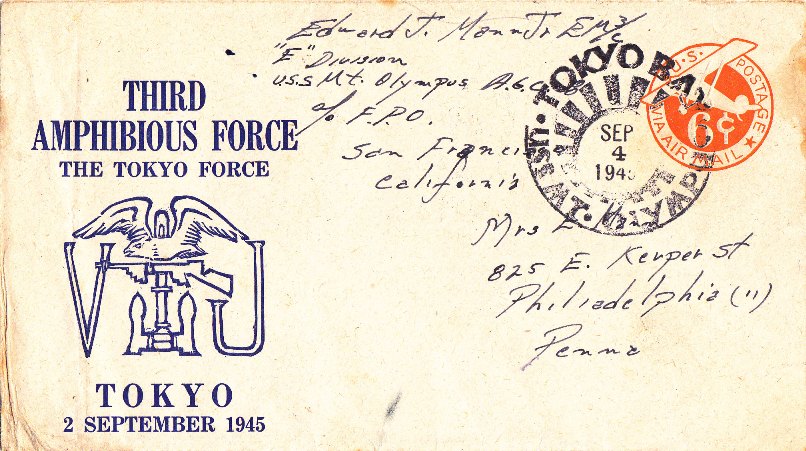 Edward J. Mann Jr EM 3/c
"E" Division
U.S.S Mt. Olympus A.G.C.
c/o F.P.O.
San Francisco
California
THIRD
AMPHIBIOUS FORCE
THE TOKYO FORCE
VJ
TOKYO
2 SEPTEMBER 1945
TOKYO BAY
SEP
4
1945
U.S. POSTAGE
6¢
VIA AIR MAIL
Mrs E.
825 E. Kerper St
Philiadelphia (11)
Penna